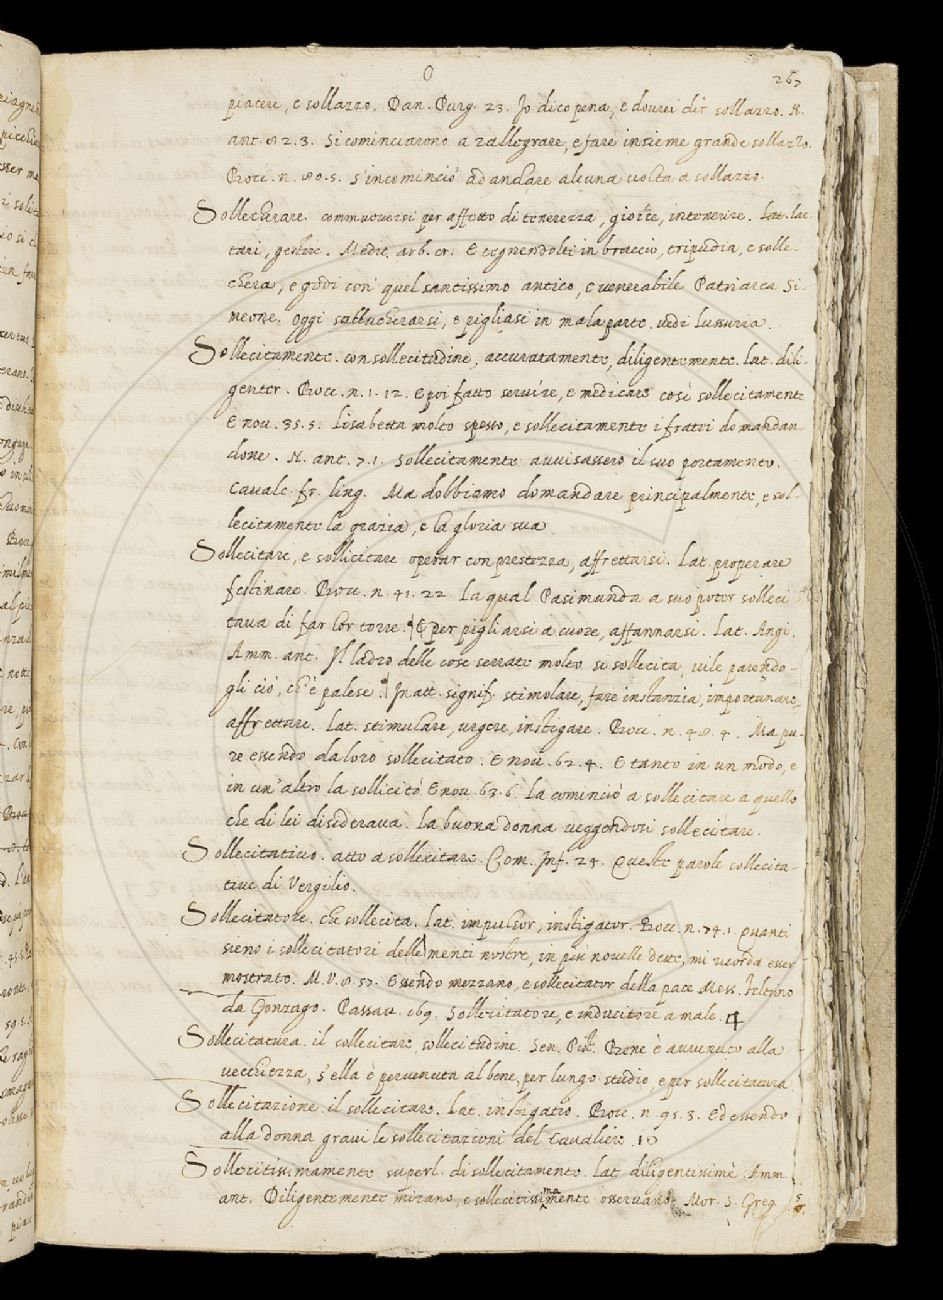 O
267
piacere, e sollazzo. Dan. Purg. 23. Io dico pena, e dovrei dir sollazzo. N.
ant. 82.3. Si cominciarono a rallegrare, e fare insieme grande sollazzo.
Bocc. n. 80.5. s'incominciò ad andare alcuna volta a sollazzo.
Sollecherare. commuoversi per affetto di tenerezza, gioire, intenerire. Lat. lae-
tari, gestire. Medit. arb. cr. E tegnendolti in braccio, tripudia, e solle-
chera, e godi con quel santissimo antico, e venerabile Patriarca Si-
meone. Oggi sollucherarsi, e pigliasi in mala parte. vedi Lussuria.
Sollecitamente. con sollecitudine, accuratamente, diligentemente. Lat. dili-
genter. Bocc. n. 1.12. E poi fatto servire, e medicare così sollecitamente
E nov. 35.5. Lisabetta molto spesso, e sollecitamente i fratei domandan-
done. N. ant. 7.1. Sollecitamente avvisassero il suo portamento.
Cavalc. fr. ling. Ma dobbiamo domandare principalmente, e sol-
lecitamente la grazia, e la gloria sua
Sollecitare, e sollicitare operar con prestezza, affrettarsi. Lat. properare
festinare. Bocc. n. 41.22. La qual Pasimunda a suo poter solleci
tava di far lor torre. ¶ E per pigliarsi a cuore, affannarsi. Lat. Angi.
Amm. ant. Il ladro delle cose serrate molto si sollecita, vile parendo-
gli ciò, ch'è palese. ¶ In att. signif. stimolare, fare instanzia, importunare,
affrettare. Lat. stimulare, urgere, instigare. Bocc. n. 48.4. Ma pu-
re essendo da loro sollecitato. E nov. 62.4. E tanto in un modo, e
in un'altro la sollicitò E nov. 63.6. la cominciò a sollecitare a quello
che di lei disiderava. La buona donna veggendosi sollecitare.
Sollecitativo. atto a sollecitare. Com. Inf. 24. Queste parole sollecita-
tive di Vergilio.
Sollecitatore. che sollecita. Lat. impulsor, instigator. Bocc. n. 74.1. Quanti
sieno i sollecitatori delle menti nostre, in più novelle dette, mi ricorda esser
mostrato. M.V. 8.57. Essendo mezzano, e sollecitator della pace Mess. Feltrino
da Gonzago. Passav. 169. Sollecitatore, e inducitore a male.
Sollecitatura. il sollecitare, sollecitudine. Sen. Pist. Bene è avvenuto alla
vecchiezza, s'ella è pervenuta al bene, per lungo studio, e per sollecitatura
Sollecitazione. il sollecitare. Lat. instigatio. Bocc. n. 95.3. Ed essendo
alla donna gravi le sollecitazioni del Cavaliere.
Sollecitissimamente superl. di sollecitamente. Lat. diligentissimè. Amm.
ant. Diligentemente mirano, e sollecitissimamente osservano. Mor. S. Greg.